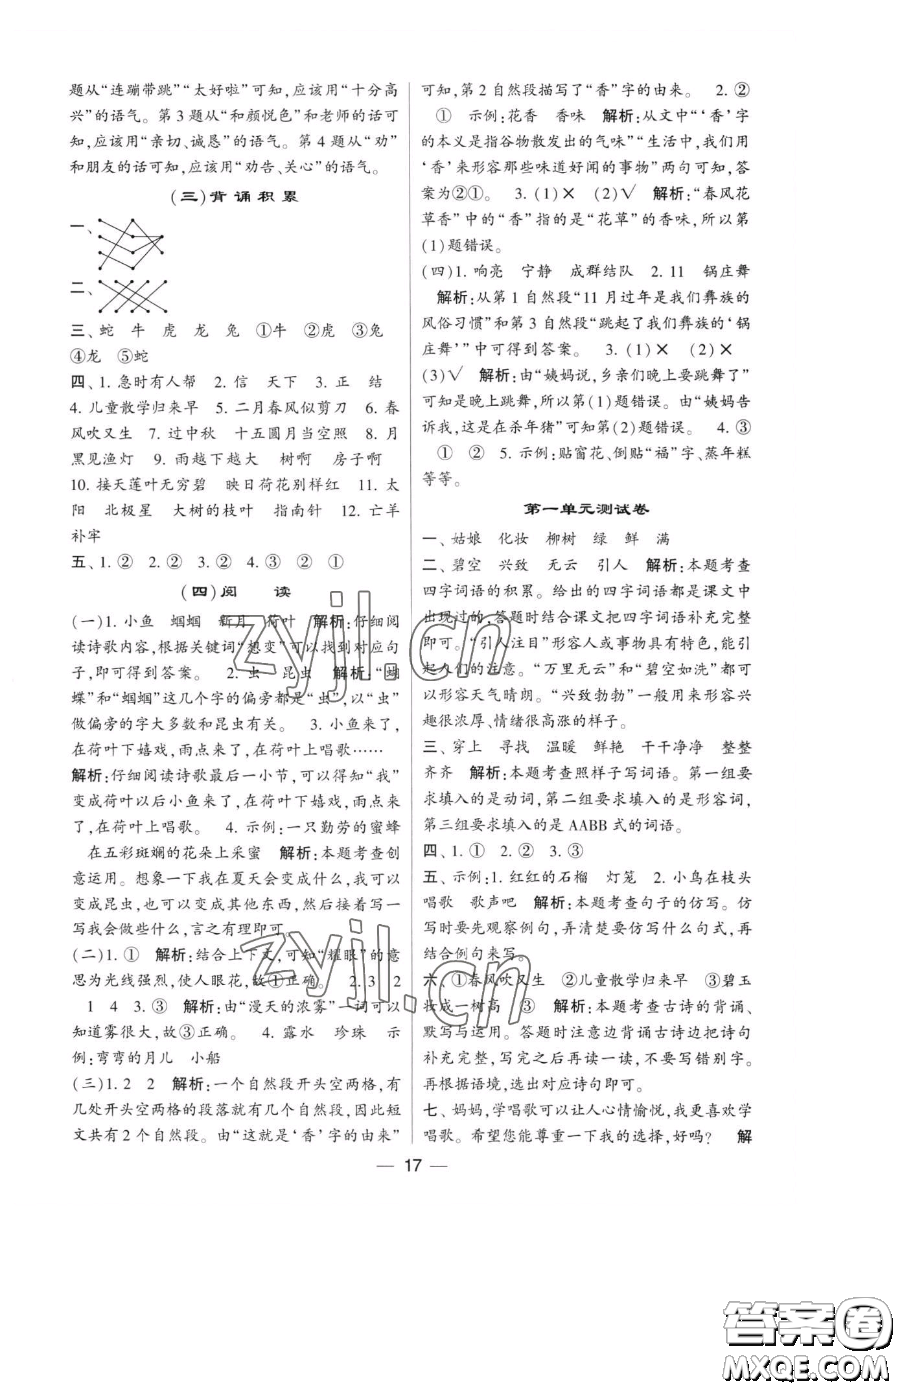 题从“连蹦带跳”“太好啦”可知,应该用“十分高
兴”的语气。第3题从“和颜悦色”和老师的话可
知,应该用“亲切、诚恳”的语气。第4题从“劝”
和朋友的话可知,应该用“劝告、关心”的语气。
(三)背诵积累
一、
二、
三、蛇 牛 虎 龙 兔 ①牛 ②虎 ③兔
④龙 ⑤蛇
四、1. 急时有人帮 2. 信 天下 3. 正 结
4. 儿童散学归来早 5. 二月春风似剪刀 6. 春
风吹又生 7. 过中秋 十五圆月当空照 8. 月
黑见渔灯 9. 雨越下越大 树啊 房子啊
10. 接天莲叶无穷碧 映日荷花别样红 11. 太
阳 北极星 大树的枝叶 指南针 12. 亡羊
补牢
五、1. ② 2. ② 3. ② 4. ③ ② ①
(四)阅 读
(一)1. 小鱼 蝈蝈 新月 荷叶 解析:仔细阅
读诗歌内容,根据关键词“想变”可以找到对应句
子,即可得到答案。 2. 虫 昆虫 解析:“蝴
蝶”和“蝈蝈”这几个字的偏旁都是“虫”,以“虫”
做偏旁的字大多数和昆虫有关。 3. 小鱼来了,
在荷叶下嬉戏,雨点来了,在荷叶上唱歌……
解析:仔细阅读诗歌最后一小节,可以得知“我”
变成荷叶以后小鱼来了,在荷叶下嬉戏,雨点来
了,在荷叶上唱歌。 4. 示例:一只勤劳的蜜蜂
在五彩斑斓的花朵上采蜜 解析:本题考查创
意运用。想象一下我在夏天会变成什么,我可以
变成昆虫,也可以变成其他东西,然后具体写一
写我会做些什么,言之有理即可。
(二)1. ① 解析:结合上下文,可知“耀眼”的意
思为光线强烈,使人眼花,故①正确。 2. 3 2
1 4 3. ③ 解析:由“漫天的浓雾”一词可以
知道雾很大,故③正确。 4. 露水 珍珠 示
例:弯弯的月儿 小船
(三)1. 2 2 解析:一个自然段开头空两格,有
几处开头空两格的段落就有几个自然段,因此短
文共有2个自然段。由“这就是‘香’字的由来”
可知,第2自然段描写了“香”字的由来。 2. ②
① 示例:花香 香味 解析:从文中“‘香’字
的本义是指谷物散发出的气味”“生活中,我们用
‘香’来形容那些味道好闻的事物”两句可知,答
案为②①。 3. (1)× (2)√ 解析:“春风花
草香”中的“香”指的是“花草”的香味,所以第
(1)题错误。
(四)1. 响亮 宁静 成群结队 2. 11 锅庄舞
解析:从第1自然段“11月过年是我们彝族的
风俗习惯”和第3自然段“跳起了我们彝族的‘锅
庄舞’”中可得到答案。 3. (1)× (2)×
(3)√ 解析:由“姨妈说,乡亲们晚上要跳舞了”
可知是晚上跳舞,所以第(1)题错误。由“姨妈告
诉我,这是在杀年猪”可知第(2)题错误。 4. ③
① ② 5. 示例:贴窗花、倒贴“福”字、蒸年糕
等等。
第一单元测试卷
一、姑娘 化妆 柳树 绿 鲜 满
二、碧空 兴致 无云 引人 解析:本题考查
四字词语的积累。给出的四字词语都是课文中
出现过的,答题时结合课文把四字词语补充完整
即可。“引人注目”形容人或事物具有特色,能引
起人们的注意。“万里无云”和“碧空如洗”都可
以形容天气晴朗。“兴致勃勃”一般用来形容兴
趣很浓厚、情绪很高涨的样子。
三、穿上 寻找 温暖 鲜艳 干干净净 整整
齐齐 解析:本题考查照样子写词语。第一组要
求填入的是动词,第二组要求填入的是形容词,
第三组要求填入的是AABB式的词语。
四、1. ① 2. ② 3. ③
五、示例:1. 红红的石榴 灯笼 2. 小鸟在枝头
唱歌 歌声吧 解析:本题考查句子的仿写。仿
写时要先观察例句,弄清楚要仿写什么句式,再
结合例句来写。
六、①春风吹又生 ②儿童散学归来早 ③碧玉
妆成一树高 ③ 解析:本题考查古诗的背诵、
默写与运用。答题时注意边背诵古诗边把诗句
补充完整,写完之后再读一读,不要写错别字。
再根据语境,选出对应诗句即可。
七、妈妈,学唱歌可以让人心情愉悦,我更喜欢学
唱歌。希望您能尊重一下我的选择,好吗? 解
— 17 —
zyjl.cn
zyjl.cn
答案圈
MXQE.COM